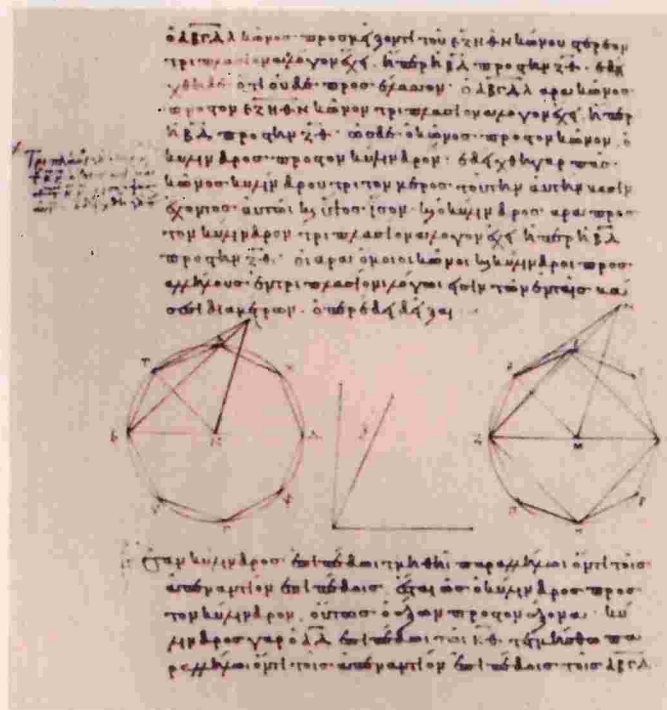 ὁ ΑΒΓΔΛ κῶνος· πρὸς μεῖζόν τι τοῦ ΕΖΗΘΝ κώνου στερεὸν
τριπλασίονα λόγον ἔχει ἤπερ ἡ ΒΔ πρὸς τὴν ΖΘ· ἐδεί
χθη δὲ ὅτι οὐδὲ πρὸς ἔλασσον· ὁ ΑΒΓΔΛ ἄρα κῶνος
πρὸς τὸν ΕΖΗΘΝ κῶνον τριπλασίονα λόγον ἔχει ἤπερ
ἡ ΒΔ πρὸς τὴν ΖΘ· ὡς δὲ ὁ κῶνος· πρὸς τὸν κῶνον ὁ
κύλινδρος· πρὸς τὸν κύλινδρον· ἐδείχθη γὰρ πᾶς
κῶνος κυλίνδρου τρίτον μέρος· τοῦ τὴν αὐτὴν βάσιν
ἔχοντος αὐτῶι καὶ ὕψος ἴσον· καὶ ὁ κύλινδρος ἄρα πρὸς
τὸν κύλινδρον τριπλασίονα λόγον ἔχει ἤπερ ἡ ΒΔ
πρὸς τὴν ΖΘ· οἱ ἄρα ὅμοιοι κῶνοι καὶ κύλινδροι πρὸς
ἀλλήλους ἐν τριπλασίονι λόγωι εἰσὶν τῶν ἐν ταῖς βά
σεσι διαμέτρων· ὅπερ ἔδει δεῖξαι
Μ
ἐὰν κύλινδρος ἐπιπέδωι τμηθῆι παραλλήλωι ὄντι τοῖς
ἀπεναντίον ἐπιπέδοις ἔσται ὡς ὁ κύλινδρος πρὸς
τὸν κύλινδρον οὕτως ὁ ἄξων πρὸς τὸν ἄξονα· κύ
λινδρος γὰρ ὁ ΑΔ ἐπιπέδωι τῶι ΗΘ τετμήσθω πα
ραλλήλωι ὄντι τοῖς ἀπεναντίον ἐπιπέδοις τοῖς ΑΒΓΔ